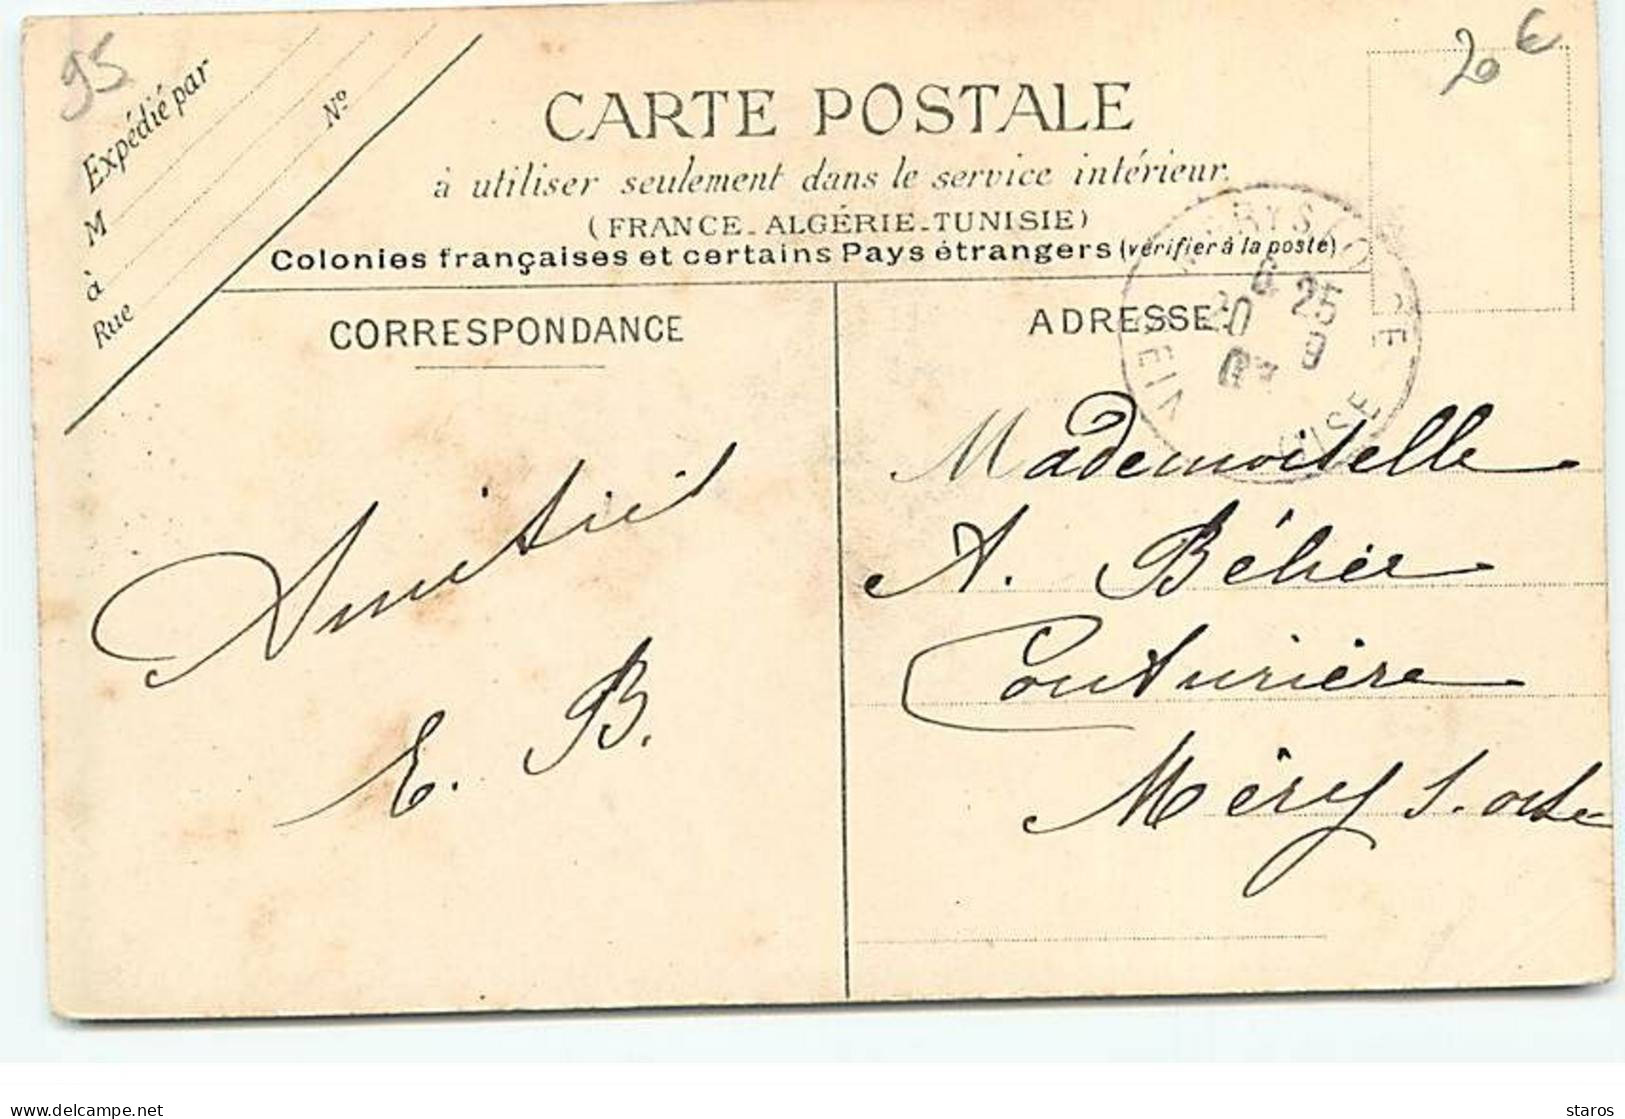 95
20 €
Expédié par
M
à
Rue
No
CARTE POSTALE
à utiliser seulement dans le service intérieur.
(FRANCE-ALGÉRIE-TUNISIE)
Colonies françaises et certains Pays étrangers (vérifier à la poste)
CORRESPONDANCE
ADRESSE
MÉRY S/O
6 25
20 8
OISE
Amitié
E. B.
Mademoiselle
A. Bélier
Couturière
Méry s. oise
delcampe.net
staros